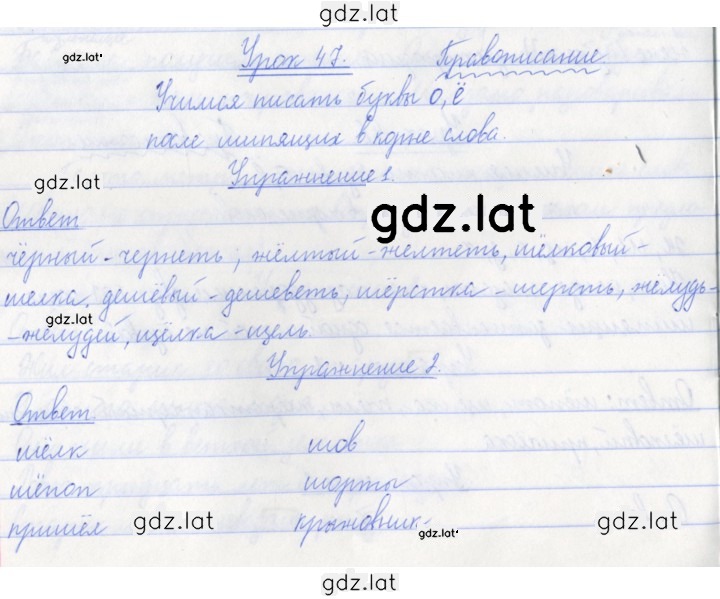 gdz.lat
gdz.lat
Урок 47. Правописание
Учимся писать буквы о, ё
после шипящих в корне слова.
Упражнение 1.
gdz.lat
gdz.lat
Ответ
чёрный - чернеть, жёлтый - желтеть, шёлковый -
шелка, дешёвый - дешеветь, шёрстка - шерсть, жёлудь -
gdz.lat
- желудей, щёлка - щель.
Упражнение 2.
Ответ
шёлк шов
шёпот шорты
пришёл крыжовник.
gdz.lat gdz.lat gdz.lat
gdz.lat